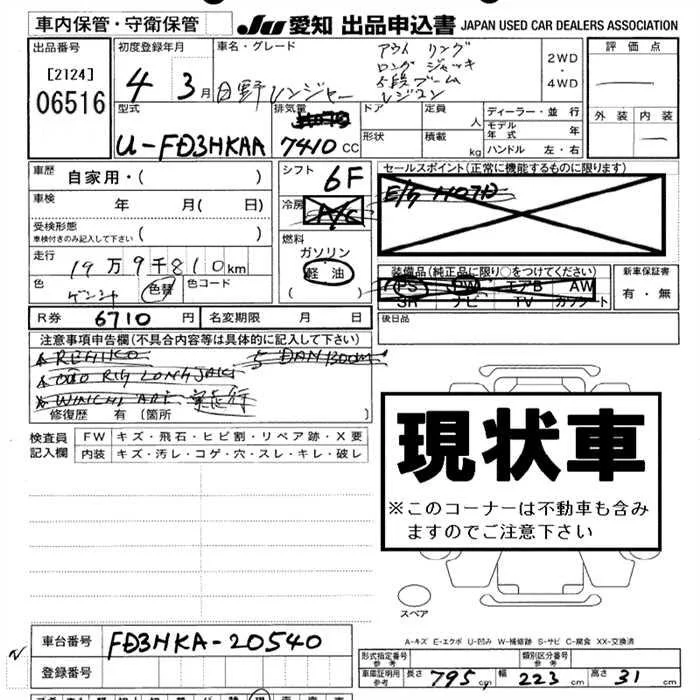 車内保管・守衛保管
JU 愛知 出品申込書 JAPAN USED CAR DEALERS ASSOCIATION
出品番号
[2124]
06516
初度登録年月
4 3月
車名・グレード
日野レンジャー
アウトリング
ロングジャッキ
5段ブーム
レジコン
2WD
・
4WD
評価点
外装 内装
型式
U-FD3HKAA
排気量
7410 CC
ドア
形状
定員
人
積載
kg
ディーラー・並行
モデル
年式 年
ハンドル 左・右
車歴 自家用・( )
車検 年 月( 日)
受検形態
車検付きのみ記入して下さい ( )
走行 19万9千810km
色
色替
色コード
シフト 6F
冷房 A/C
燃料
ガソリン
軽油
( )
セールスポイント(正常に機能するものに限ります)
装備品(純正品に限り○をつけてください)
PS PW エアB AW
SR ナビ TV カワシート
新車保証書
有・無
R券 6710 円 名変期限 月 日
後日品
注意事項申告欄(不具合内容等は具体的に記入して下さい)
5 DAN BOOM
修復歴 有(箇所 )
検査員
記入欄
FW キズ・飛石・ヒビ割・リペア跡・X要
内装 キズ・汚レ・コゲ・穴・スレ・キレ・破レ
現状車
※このコーナーは不動車も含み
ますのでご注意下さい
スペア
A-キズ E-エクボ U-凹み W-補修跡 S-サビ C-腐食 XX-交換済
車台番号 FD3HKA-20540
登録番号
形式指定番号
参考
類別区分番号
参考
車庫証明用
参考
長さ 795cm 幅 223cm 高さ 31cm